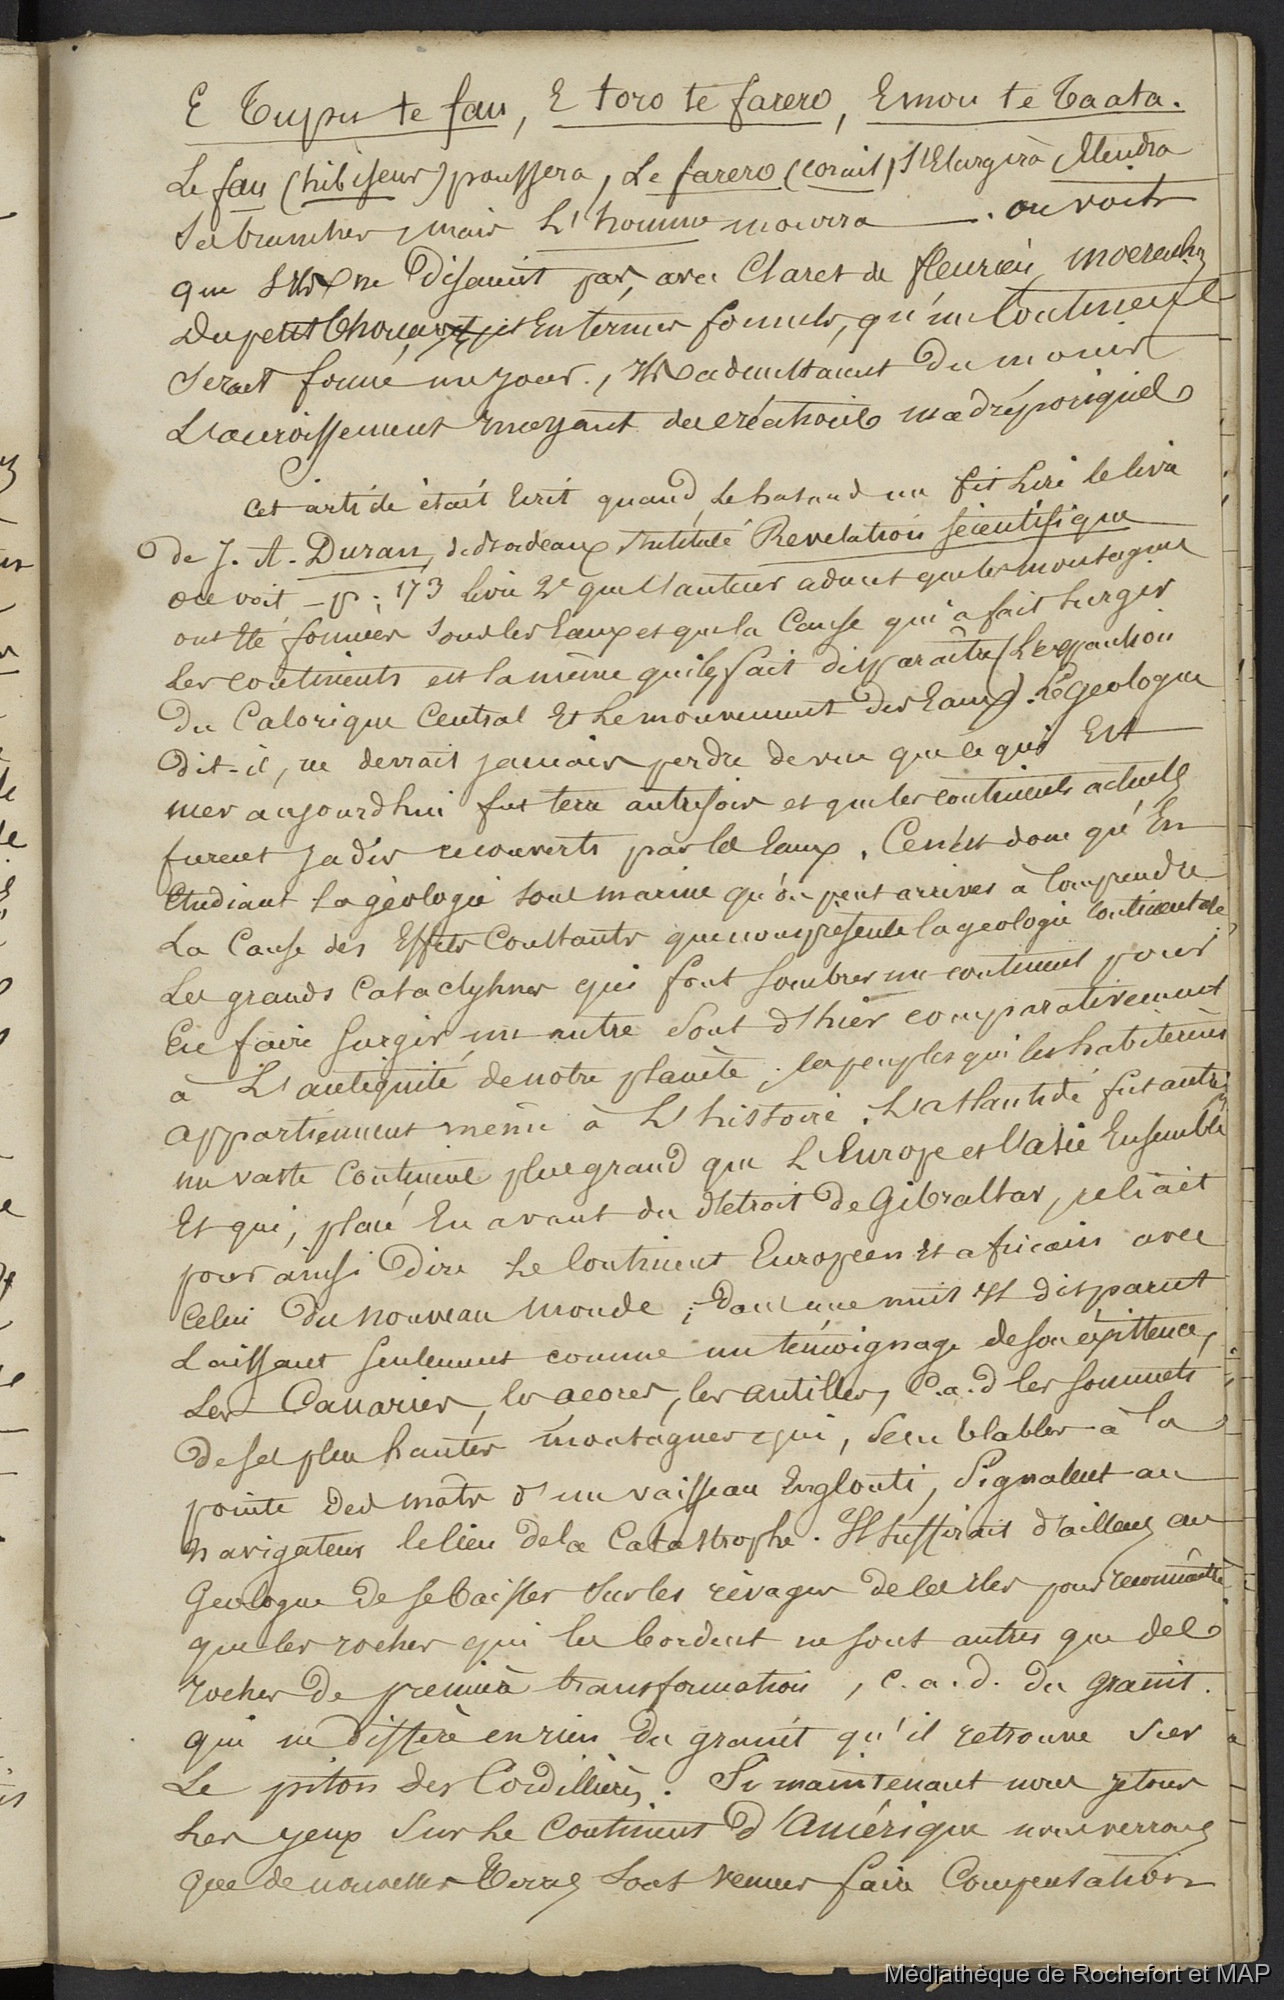 E Tupu te fau, E toro te farero, E mou te Taata.
Le fau (hibiseus) poussera, Le farero (corail) s'Elargira Etendra
Ses branches, mais L'homme mourra — . on voit
que s'ils ne disaient pas, avec Claret de fleurieu,
Dupetit Thouars, et En termes formels, qu'un Continent
serait formé un jour, ils admettaient du moins
L'accroissement incessant des créations madréporiques
Cet article était Ecrit quand le hasard me fit Lire le livre
de J. A. Duran, de Bordeaux intitulé Revelation scientifique
on voit - p. 173 livre 2e que l'auteur admet que les montagnes
ont été formées sous les Eaux et que la Cause qui a fait surgir
Les continents est la même qui les fait disparaître (L'expantion
du Calorique Central Et Le mouvement des Eaux). Le géologue
dit-il, ne devrait jamais perdre de vue que ce qui Est
mer aujourd'hui fut terre autrefois et que les continents actuels
furent jadis recouverts par les Eaux. Ce n'est donc qu'En
Etudiant la géologie sous marine qu'on peut arriver à Comprendre
La Cause des Effets Constants que nous présente la géologie Continentale
Les grands Cataclysmes qui font sombrer un continent pour
En faire surgir un autre sont d'hier comparativement
à L'antiquité de notre planète ; les peuples qui les habitèrent
appartiennent même à L'histoire. L'atlantide fut autrefois
un vaste Continent plus grand que L'Europe et l'asie Ensemble
Et qui, placé En avant du détroit de Gibraltar, reliait
pour ainsi dire Le Continent Européen et africain avec
Celui du nouveau monde ; dans une nuit il disparut
Laissant seulement comme un témoignage de son existence,
Les Canaries, les açores, les antilles, C.a.d les sommets
de ses plus hautes montagnes qui, semblables à la
pointe des mâts d'un vaisseau Englouti, signalent au
navigateur le lieu de la Catastrophe. Il suffirait d'ailleurs au
Géologue de se baisser sur les rivages de ces iles pour reconnaitre
que les rochers qui les bordent ne sont autres que des
rochers de première transformation, c.a.d. du granit.
qui ne diffère en rien du granit qu'il retrouve sur
Le piton des Cordillières. Si maintenant nous jetons
Les yeux sur Le Continent d'Amérique nous verrons
que de nouvelles Terres sont venues faire Compensation
Médiathèque de Rochefort et MAP